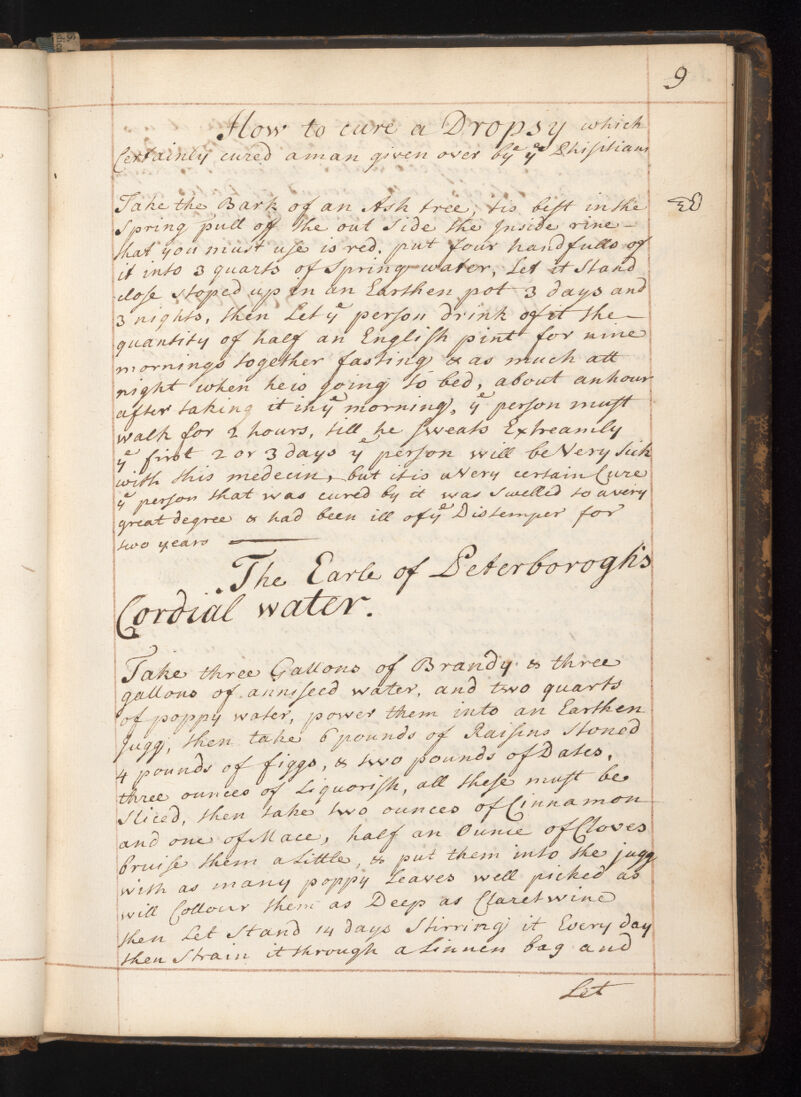 9
How to cure a Dropsy which
Certainly cured a man given over by yᵉ yᵉ Phisitians
Take the Bark of an Ash tree, tis best in the
Spring pull off the out Side the Inside rine
that you must use is red, put four handfulls of
it into 3 quarts of Spring water, Let it Stand
close stoped up in an Earthen pot 3 days and
3 nights, then Let yᵉ person drink of it the
quantity of half an English pint for nine
mornings together fasting & as much att
night when he is going to bed, about an hour
after taking it in yᵉ morning, yᵉ person must
walk for 2 hours, till he sweats Extreamly
yᵉ first 2 or 3 days yᵉ person will be Very Sick
with this medecin, but it is a Very certain Cure
yᵉ person that was cured by it was swelled to a very
great degree & had been ill of yᵉ Distemper for
two years
The Earle of Peterborogh's
Cordial water.
Take three Gallons of Brandy & three
gallons of anniseed water, and two quarts
of poppy water, power them into an Earthen
Jugg, then take 6 pounds of Raisins Stoned
4 pounds of figgs, & two pounds of Dates,
three ounces of Liquorish, all these must be
Sliced, then take two ounces of Cinnamon
and one of Mace, half an Ounce of Cloves
bruise them a Little, & put them into the jugg
with as many poppy Leaves well picked as
will Collour them as Deep as Claret wine
then Let Stand 14 days Stirring it Every day
then Strain it through a Linnen bag and
Let